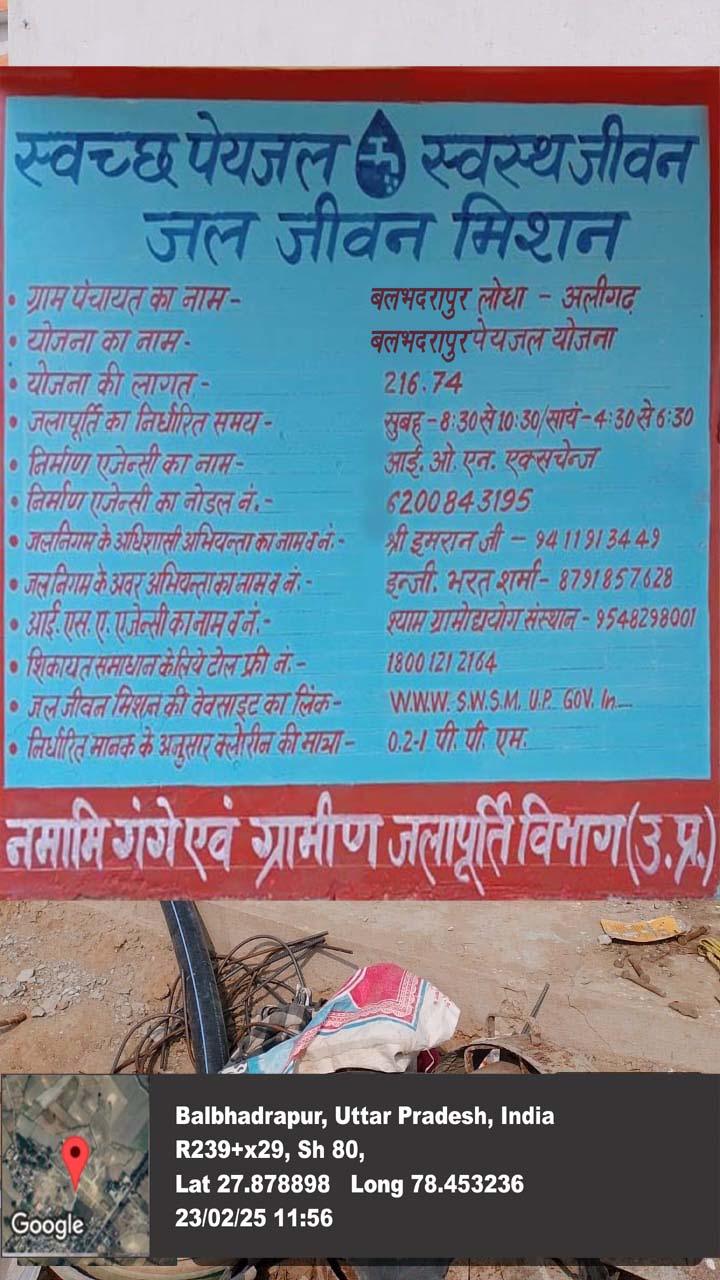 स्वच्छ पेयजल स्वस्थ जीवन
जल जीवन मिशन
• ग्राम पंचायत का नाम - बलभदरापुर लोधा - अलीगढ़
• योजना का नाम - बलभदरापुर पेयजल योजना
• योजना की लागत - 216.74
• जलापूर्ति का निर्धारित समय - सुबह - 8:30 से 10:30/सायं - 4:30 से 6:30
• निर्माण एजेन्सी का नाम - आई. ओ. एन. एक्सचेन्ज
• निर्माण एजेन्सी का नोडल नं. - 6200843195
• जलनिगम के अधिशासी अभियन्ता का नाम व नं. - श्री इमरान जी - 9411913449
• जलनिगम के अवर अभियन्ता का नाम व नं. - इन्जी. भरत शर्मा - 8791857628
• आई. एस. ए. एजेन्सी का नाम व नं. - श्याम ग्रामोद्ययोग संस्थान - 9548298001
• शिकायत समाधान के लिये टोल फ्री नं. - 1800 121 2164
• जल जीवन मिशन की वेवसाइट का लिंक - W.W.W. S.W.S.M. U.P. GOV. In
• निर्धारित मानक के अनुसार क्लोरीन की मात्रा - 0.2-1 पी. पी. एम.
नमामि गंगे एवं ग्रामीण जलापूर्ति विभाग (उ.प्र.)
Balbhadrapur, Uttar Pradesh, India
R239+x29, Sh 80,
Lat 27.878898 Long 78.453236
23/02/25 11:56
Google